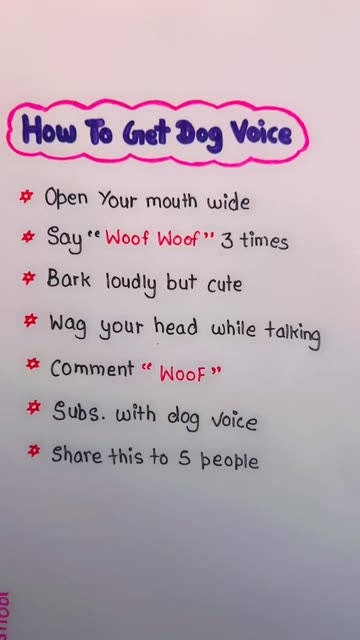 How To Get Dog Voice
Open Your mouth wide
Say "Woof Woof" 3 times
Bark loudly but cute
Wag your head while talking
Comment "WooF"
Subs. with dog voice
Share this to 5 people